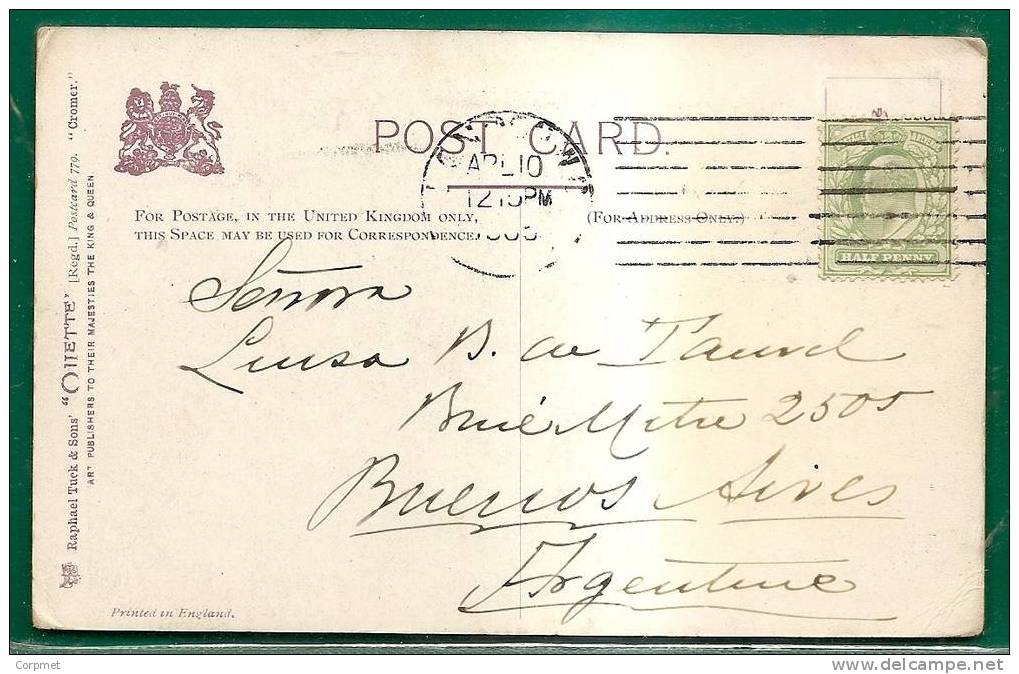 POST CARD.
APL 10
12 15 PM
FOR POSTAGE, IN THE UNITED KINGDOM ONLY,
THIS SPACE MAY BE USED FOR CORRESPONDENCE.
(FOR ADDRESS ONLY.)
HALF PENNY
Señora
Luisa B. de
Bmé Mitre 2505
Buenos Aires
Argentine
Raphael Tuck & Sons' "OILETTE" [Regd.] Postcard 779. "Cromer."
ART PUBLISHERS TO THEIR MAJESTIES THE KING & QUEEN
Printed in England.
Corpmet
www.delcampe.net